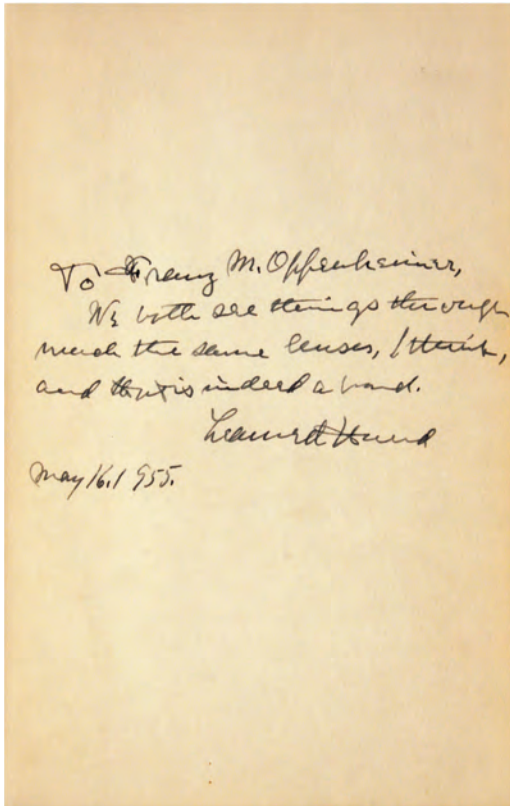 To Franz M. Oppenheimer,
We both see things through
much the same lenses, I think,
and that is indeed a bond.
Learned Hand
May 16, 1955.